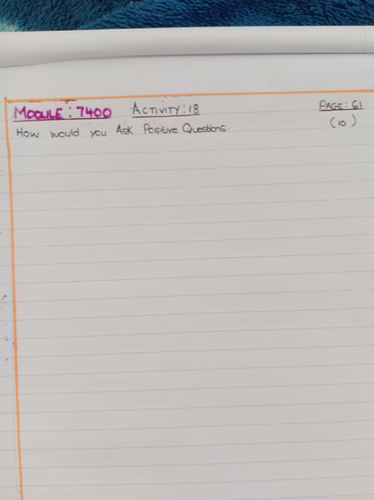 MODULE : 7400 ACTIVITY : 18 PAGE : 61
How would you Ask Positive Questions. (10)